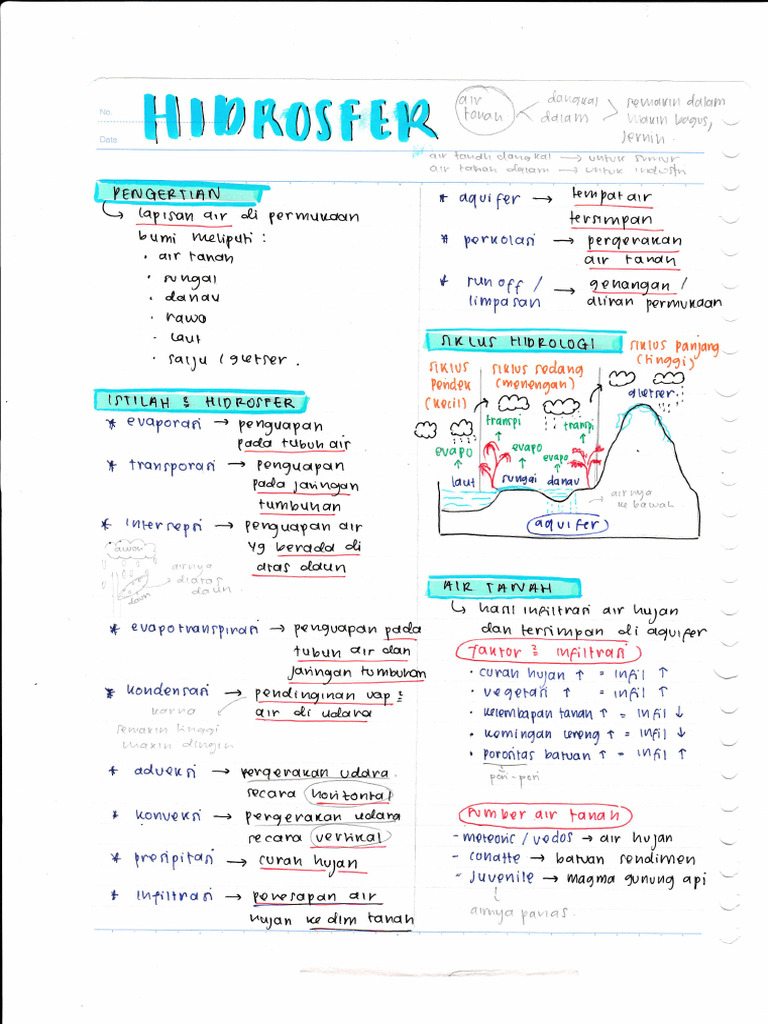 No.
Date
HIDROSFER
air tanah
dangkal
dalam
semakin dalam
makin bagus,
jernih.
air tanah dangkal → untuk sumur
air tanah dalam → untuk industri
PENGERTIAN
↳ lapisan air di permukaan
bumi meliputi :
• air tanah
• sungai
• danau
• rawa
• laut
• salju / gletser.
ISTILAH ² HIDROSFER
* evaporasi → penguapan
pada tubuh air
* transporasi → penguapan
pada jaringan
tumbuhan
* intersepsi → penguapan air
yg berada di
atas daun
awan
daun
airnya
diatas
daun.
* evapotranspirasi → penguapan pada
tubuh air dan
jaringan tumbuhan
* kondensasi → pendinginan uap ²
air di udara
karna
semakin tinggi
makin dingin
* adveksi → pergerakan udara
secara horizontal
* konveksi → pergerakan udara
secara vertikal
* presipitasi → curah hujan
* infiltrasi → peresapan air
hujan ke dlm tanah
* aquifer → tempat air
tersimpan
* perkolasi → pergerakan
air tanah
* run off / → genangan /
limpasan aliran permukaan
SIKLUS HIDROLOGI
siklus
pendek
(kecil)
siklus sedang
(menengah)
siklus panjang
(tinggi)
gletser
transpi
transpi
evapo
evapo
evapo
laut
sungai
danau
airnya
ke bawah
aquifer
AIR TANAH
↳ hasil infiltrasi air hujan
dan tersimpan di aquifer
faktor ² infiltrasi
• curah hujan ↑ = infil ↑
• vegetasi ↑ = infil ↑
• kelembapan tanah ↑ = infil ↓
• kemiringan lereng ↑ = infil ↓
• porositas batuan ↑ = infil ↑
pori-pori
sumber air tanah
- meteoric / vados → air hujan
- conatte → batuan sendimen
- juvenile → magma gunung api
airnya panas.